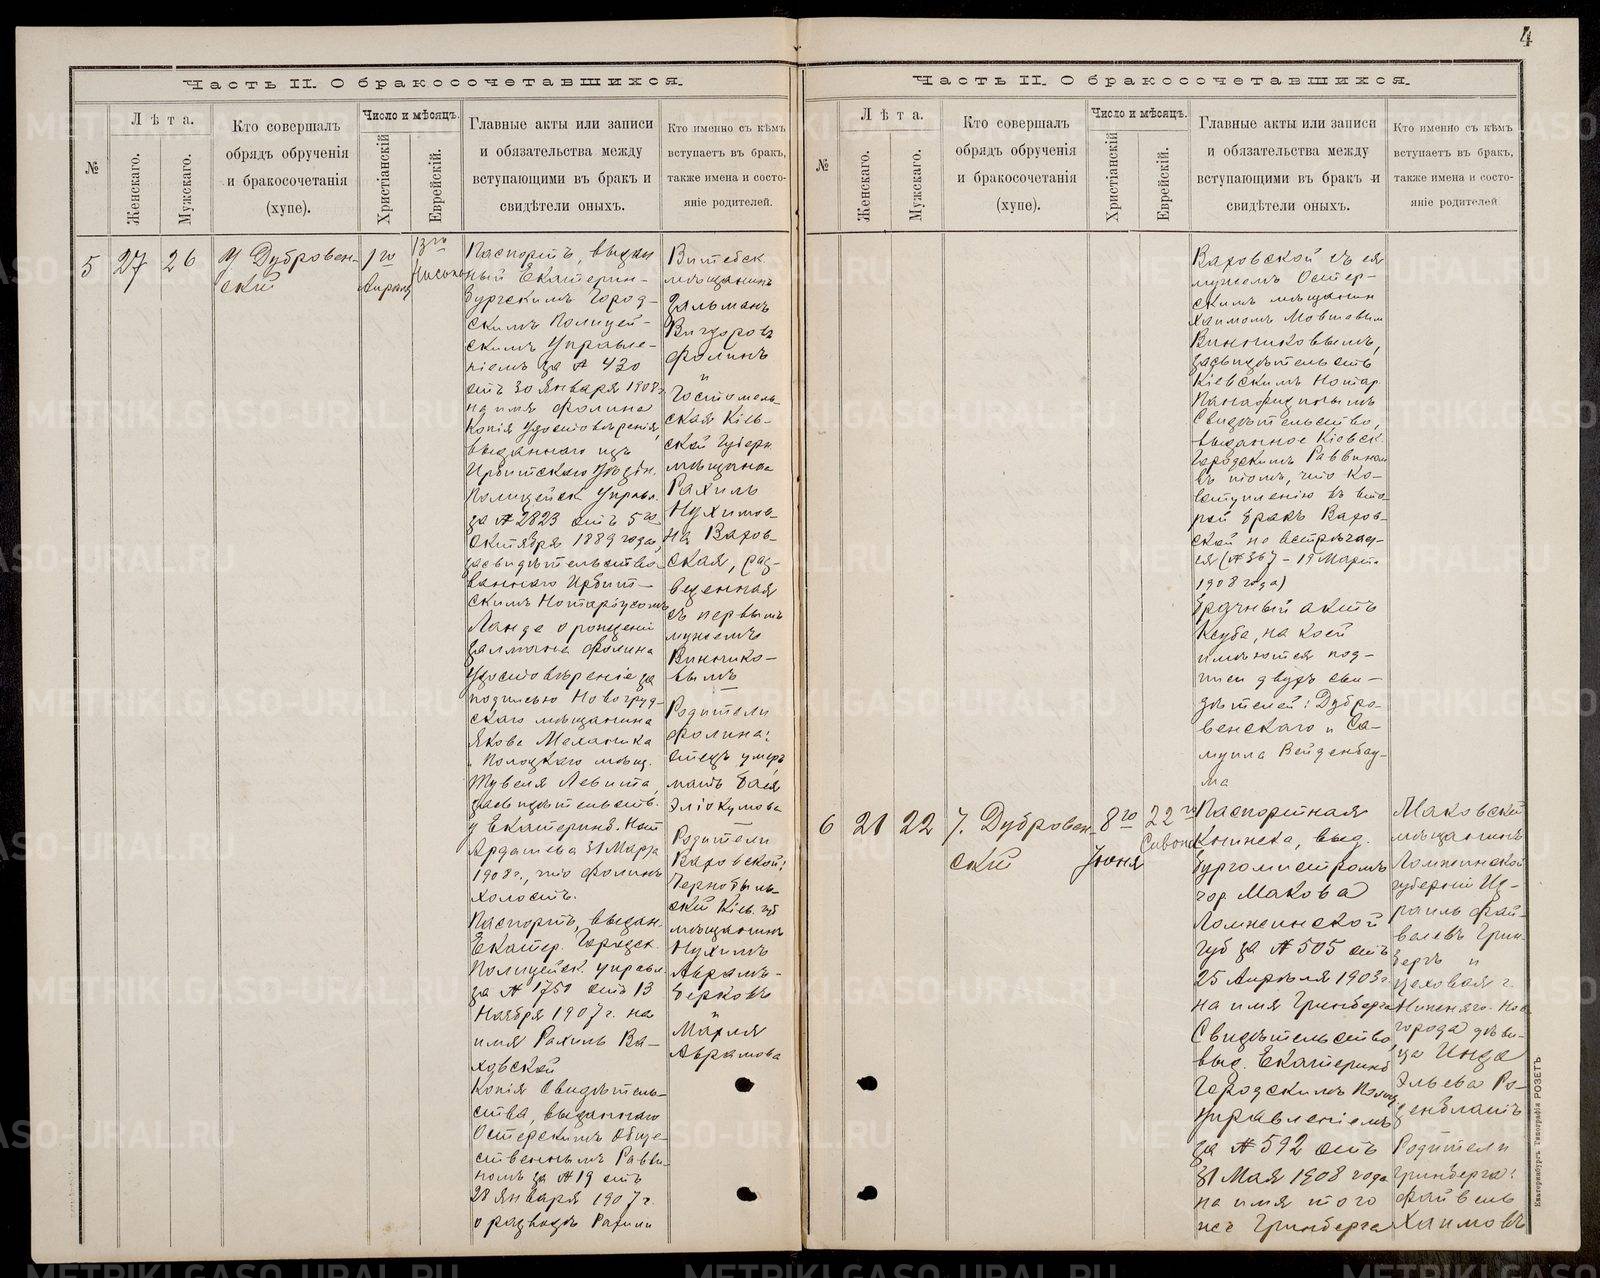 4
Часть II. О бракосочетавшихся.
№
Лѣта.
Женскаго.
Мужскаго.
Кто совершалъ
обрядъ обрученія
и бракосочетанія
(хупе).
Число и мѣсяцъ.
Христіанскій
Еврейскій.
Главные акты или записи
и обязательства между
вступающими въ бракъ и
свидѣтели оныхъ.
Кто именно съ кѣмъ
вступаетъ въ бракъ,
также имена и состо-
яніе родителей.
5
27
26
Дубровен-
скій
1го
Апрѣля
13го
Паспортъ, выдан
ный Екатерин-
бургскимъ Город-
скимъ Полицей-
скимъ Управле-
ніемъ за № 420
отъ 30 Января 1908г
на имя Фолина
Копія Удостовѣренія,
выданнаго изъ
Ирбитскаго Уѣздн.
Полицейск Управл.
за № 2823 отъ 5го
Октября 1889 года,
засвидѣтельство-
ваннаго Ирбит-
скимъ Нотаріусомъ
Ланде о рожденіи
Залмана Фолина
Удостовѣреніе за
подписью Новогруд-
скаго мѣщанина
Якова Меламика
и Полоцкаго мѣщ.
Левита,
засвидѣтельств.
у Екатеринб. Нот
Ардашева 31 Марта
1908г., что Фолинъ
холостъ.
Паспортъ, выдан.
Екатер. Городск.
Полицейск. управл.
за № 1750 отъ 13
Ноября 1907 г. на
имя Рахиль Ва-
ховской
Копія Свидѣтель-
ства, выданнаго
Остерскимъ Обще-
ственнымъ Равви-
номъ за № 19 отъ
28 Января 1907 г.
о разводѣ Рахили
Витебск
мѣщанинъ
Зальманъ
Вигдоровъ
Фолинъ
и
Гостомель-
ская Кіев-
ской Губерн.
мѣщанка
Рахиль
Нухимов-
на Вахов-
ская, раз-
веденная
съ первымъ
мужемъ
Виннико-
вымъ
Родители
Фолина:
отецъ умеръ
мать Бася
Эліокумова
Родители
Ваховской:
Чернобыль-
скій Кіев. губ
мѣщанинъ
Нухимъ
Аврамъ-
Берковъ
и
Марія
Аврамова
Часть II. О бракосочетавшихся.
№
Лѣта.
Женскаго.
Мужскаго.
Кто совершалъ
обрядъ обрученія
и бракосочетанія
(хупе).
Число и мѣсяцъ.
Христіанскій
Еврейскій.
Главные акты или записи
и обязательства между
вступающими въ бракъ и
свидѣтели оныхъ.
Кто именно съ кѣмъ
вступаетъ въ бракъ,
также имена и состо-
яніе родителей
Ваховской съ ея
мужемъ Остер-
скимъ мѣщанин
Хаимомъ Мовшовым
Винниковымъ,
засвидѣтельств
Кіевскимъ Нотар
Панафидинымъ
Свидѣтельство,
выданное Кіевск.
Городскимъ Раввином
въ томъ, что ко
вступленію въ вто-
рой бракъ Вахов-
ской не встрѣчает-
ся (№ 367 - 19 Марта
1908 года)
Брачный актъ
Ксуба, на коей
имѣются под-
писи двухъ сви-
дѣтелей: Дубро-
венскаго и Са-
муила Вейденбау-
ма
6
21
22
Дубровен-
скій
8го
Іюня
22го
Сивона
Паспортная
Книжка, выд.
Бургомистромъ
гор. Макова
Ломжинской
губ за № 505 отъ
25 Апрѣля 1903г
на имя Гринберга
Свидѣтельство,
выд. Екатеринб
Городскимъ Полиц.
Управленіемъ
за № 592 отъ
31 Мая 1908 года
на имя того
же Гринберга
Маковскій
мѣщанинъ
Ломжинской
губерніи Из-
раиль Фай-
велевъ Грин-
бергъ и
цеховая г.
Нижняго-Нов
города дѣви-
ца Инда
Эльева Ро-
зенблатъ
Родители
Гринберга:
Файвель
Хаимовъ
Екатеринбургъ Типографія РОЗЕТЪ
METRIKI.GASO-URAL.RU